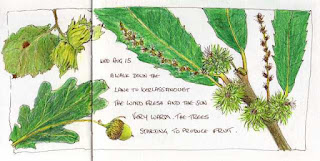 WED AUG 15
A WALK DOWN THE
LANE TO
THE WIND FRESH AND THE SUN
VERY WARM. THE TREES
STARTING TO PRODUCE FRUIT.